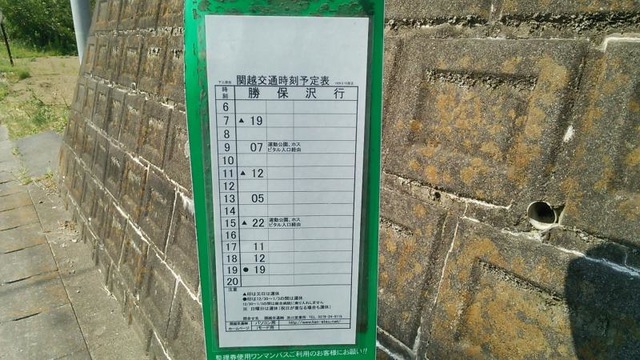 関越交通時刻予定表
時刻 勝保沢行
6
7 ▲ 19
8
9 07 運動公園、ホスピタル入口経由
10
11 ▲ 12
12
13 05
14
15 ▲ 22 運動公園、ホスピタル入口経由
16
17 11
18 12
19 ● 19
20
注意
整理券使用ワンマンバスご利用のお客様にお願い!!